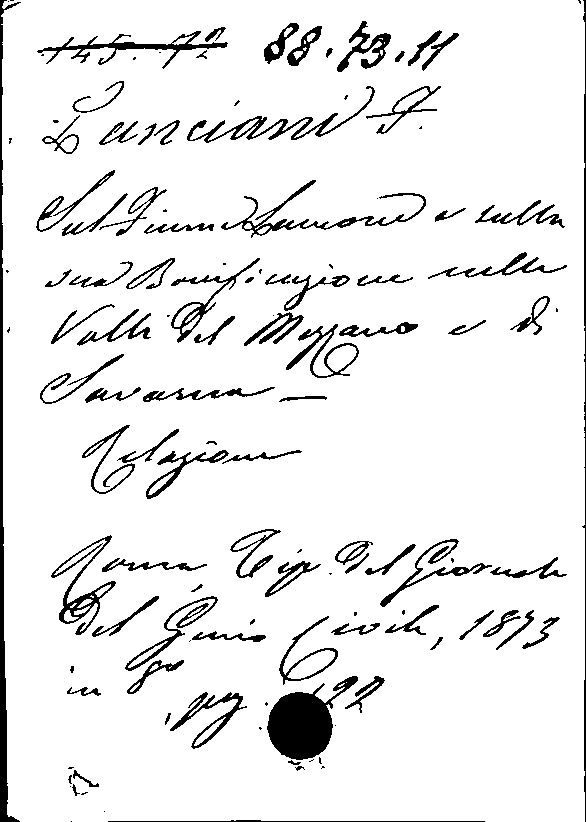 145. 72 88.73.11
Lanciani F.
Sul Fiume Lamone e sulla
sua Bonificazione nelle
Valli del Mezzano e di
Savarna —
Relazione
Roma, Tip. del Giornale
del Genio Civile, 1873
in 8º
, pag. 22